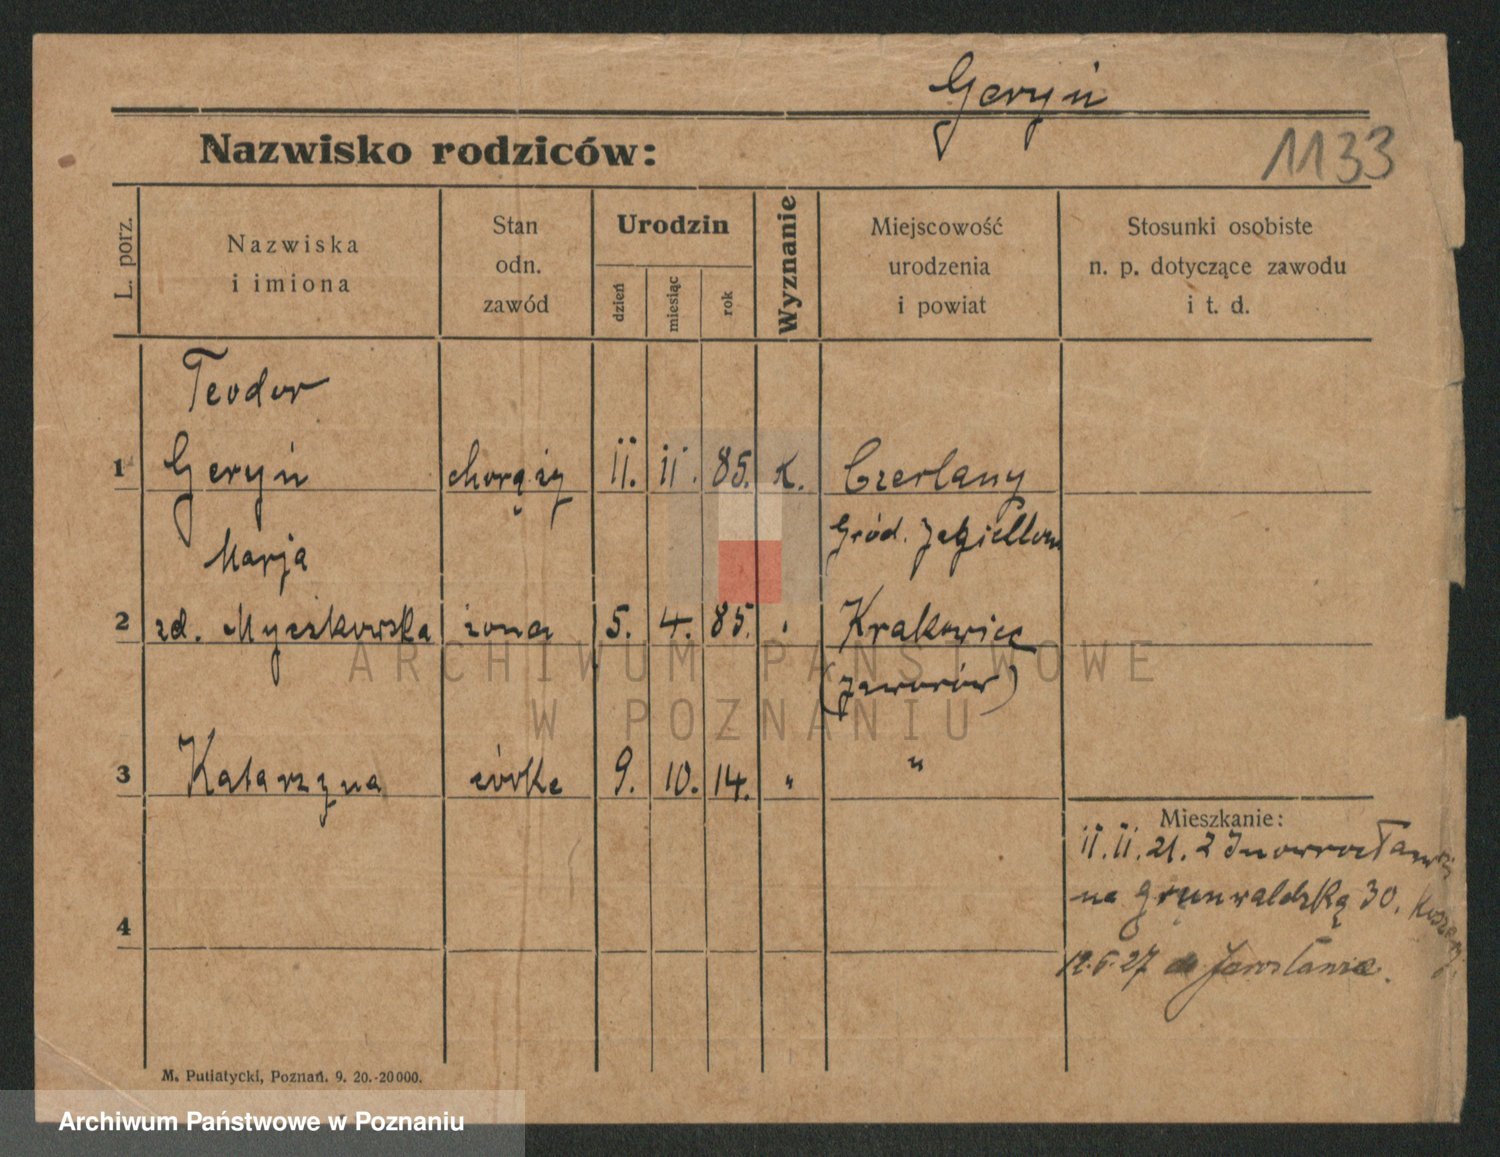 Geryń
Nazwisko rodziców:
1133
L. porz.
Nazwiska
i imiona
Stan
odn.
zawód
Urodzin
dzień
miesiąc
rok
Wyznanie
Miejscowość
urodzenia
i powiat
Stosunki osobiste
n. p. dotyczące zawodu
i t. d.
Teodor
1 Geryń chorąży 11. 11. 85. K. Czerlany
Gród. Jagiellon
Marja
2 zd. Myszkowska żona 5. 4. 85. " Krakowiec
(Jaworów)
3 Katarzyna córka 9. 10. 14. " "
Mieszkanie:
11. 11. 21. z Inowrocławia
na Grunwaldzką 30. Koszary
4
12.5.27 do Jarosławia.
M. Putiatycki, Poznań. 9. 20.-20000.
ARCHIWUM PAŃSTWOWE
W POZNANIU
Archiwum Państwowe w Poznaniu